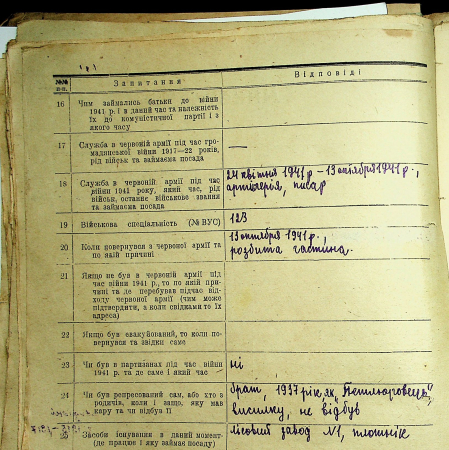 №№ п-п. Запитання Відповіді
16 Чим займались батьки до війни
1941 р. і в даний час та належність
їх до комуністичної партії і з
якого часу
17 Служба в червоній армії під час гро-
мадянської війни 1917—22 років,
рід військ та займаєма посада —
24 квітня 1941 р – 13 октября 1941 р.,
18 Служба в червоній армії під час
війни 1941 року, який час, рід
військ, останнє військове звання
та займаєма посада
артилерія, писар
19 Військова спеціальність (№ ВУС) 123
13 октября 1941 р.,
20 Коли повернувся з червоної армії та
по якій причині
розбита частина.
21 Якщо не був в червоній армії під
час війни 1941 р., то по якій при-
чині та де перебував підчас від-
ходу червоної армії (чим може
підтвердити, а коли свідками то їх
адреса)
22 Якщо був евакуйований, то коли по-
вернувся та звідки саме
23 Чи був в партизанах під час війни
1941 р. та де саме і який час
ні
24 Чи був репресований сам, або хто з
родичів, коли і защо, яку мав
кару та чи відбув її
брат, 1937 рік як „Петлюровець",
висилку, не відбув
25 Засоби існування в даний момент
(де працює і яку займає посаду)
лісовий завод №1, плотнік